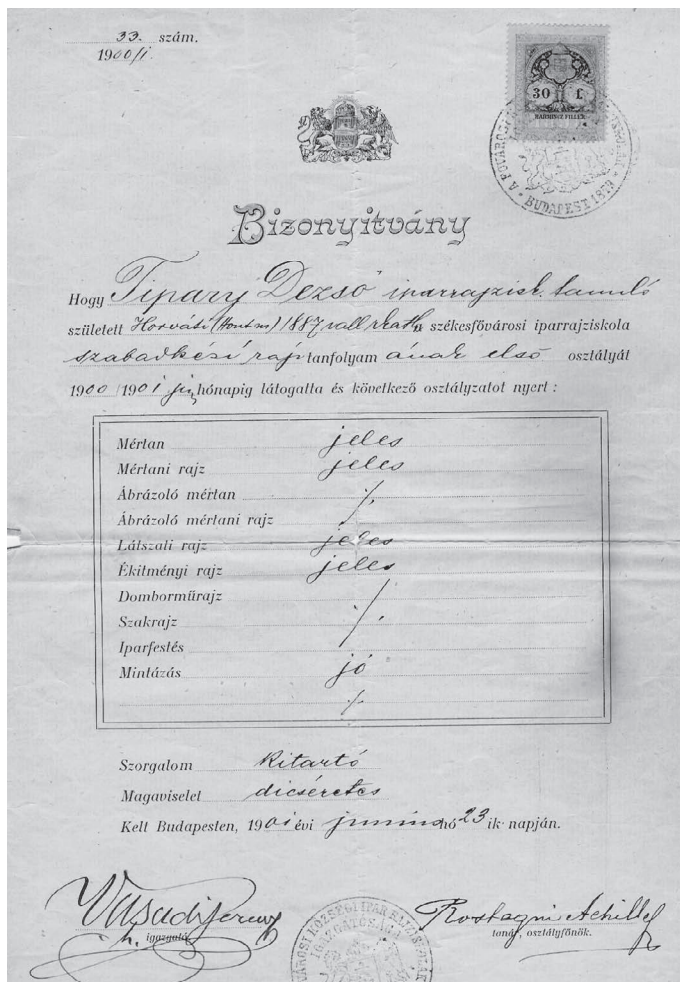 33. szám.
1900/1
30 f.
HARMINCZ FILLÉR
BUDAPEST 18
Bizonyitvány
Hogy Tipary Dezső iparrajzisk. tanuló
született Horváti (Hont m) 1887 vall r. kath. a székesfővárosi iparrajziskola
szabadkézi rajz tanfolyam ának első osztályát
1900/1901 jun hónapig látogatta és következő osztályzatot nyert:
Mértan jeles
Mértani rajz jeles
Ábrázoló mértan ./.
Ábrázoló mértani rajz
Látszati rajz jeles
Ékitményi rajz jeles
Domborműrajz
Szakrajz ./.
Iparfestés
Mintázás jó
./.
Szorgalom kitartó
Magaviselet dicséretes
Kelt Budapesten, 1901 évi junius hó 23 ik napján.
Vasadi Ferenc Rostagni Achille
h. igazgató. tanár, osztályfőnök.